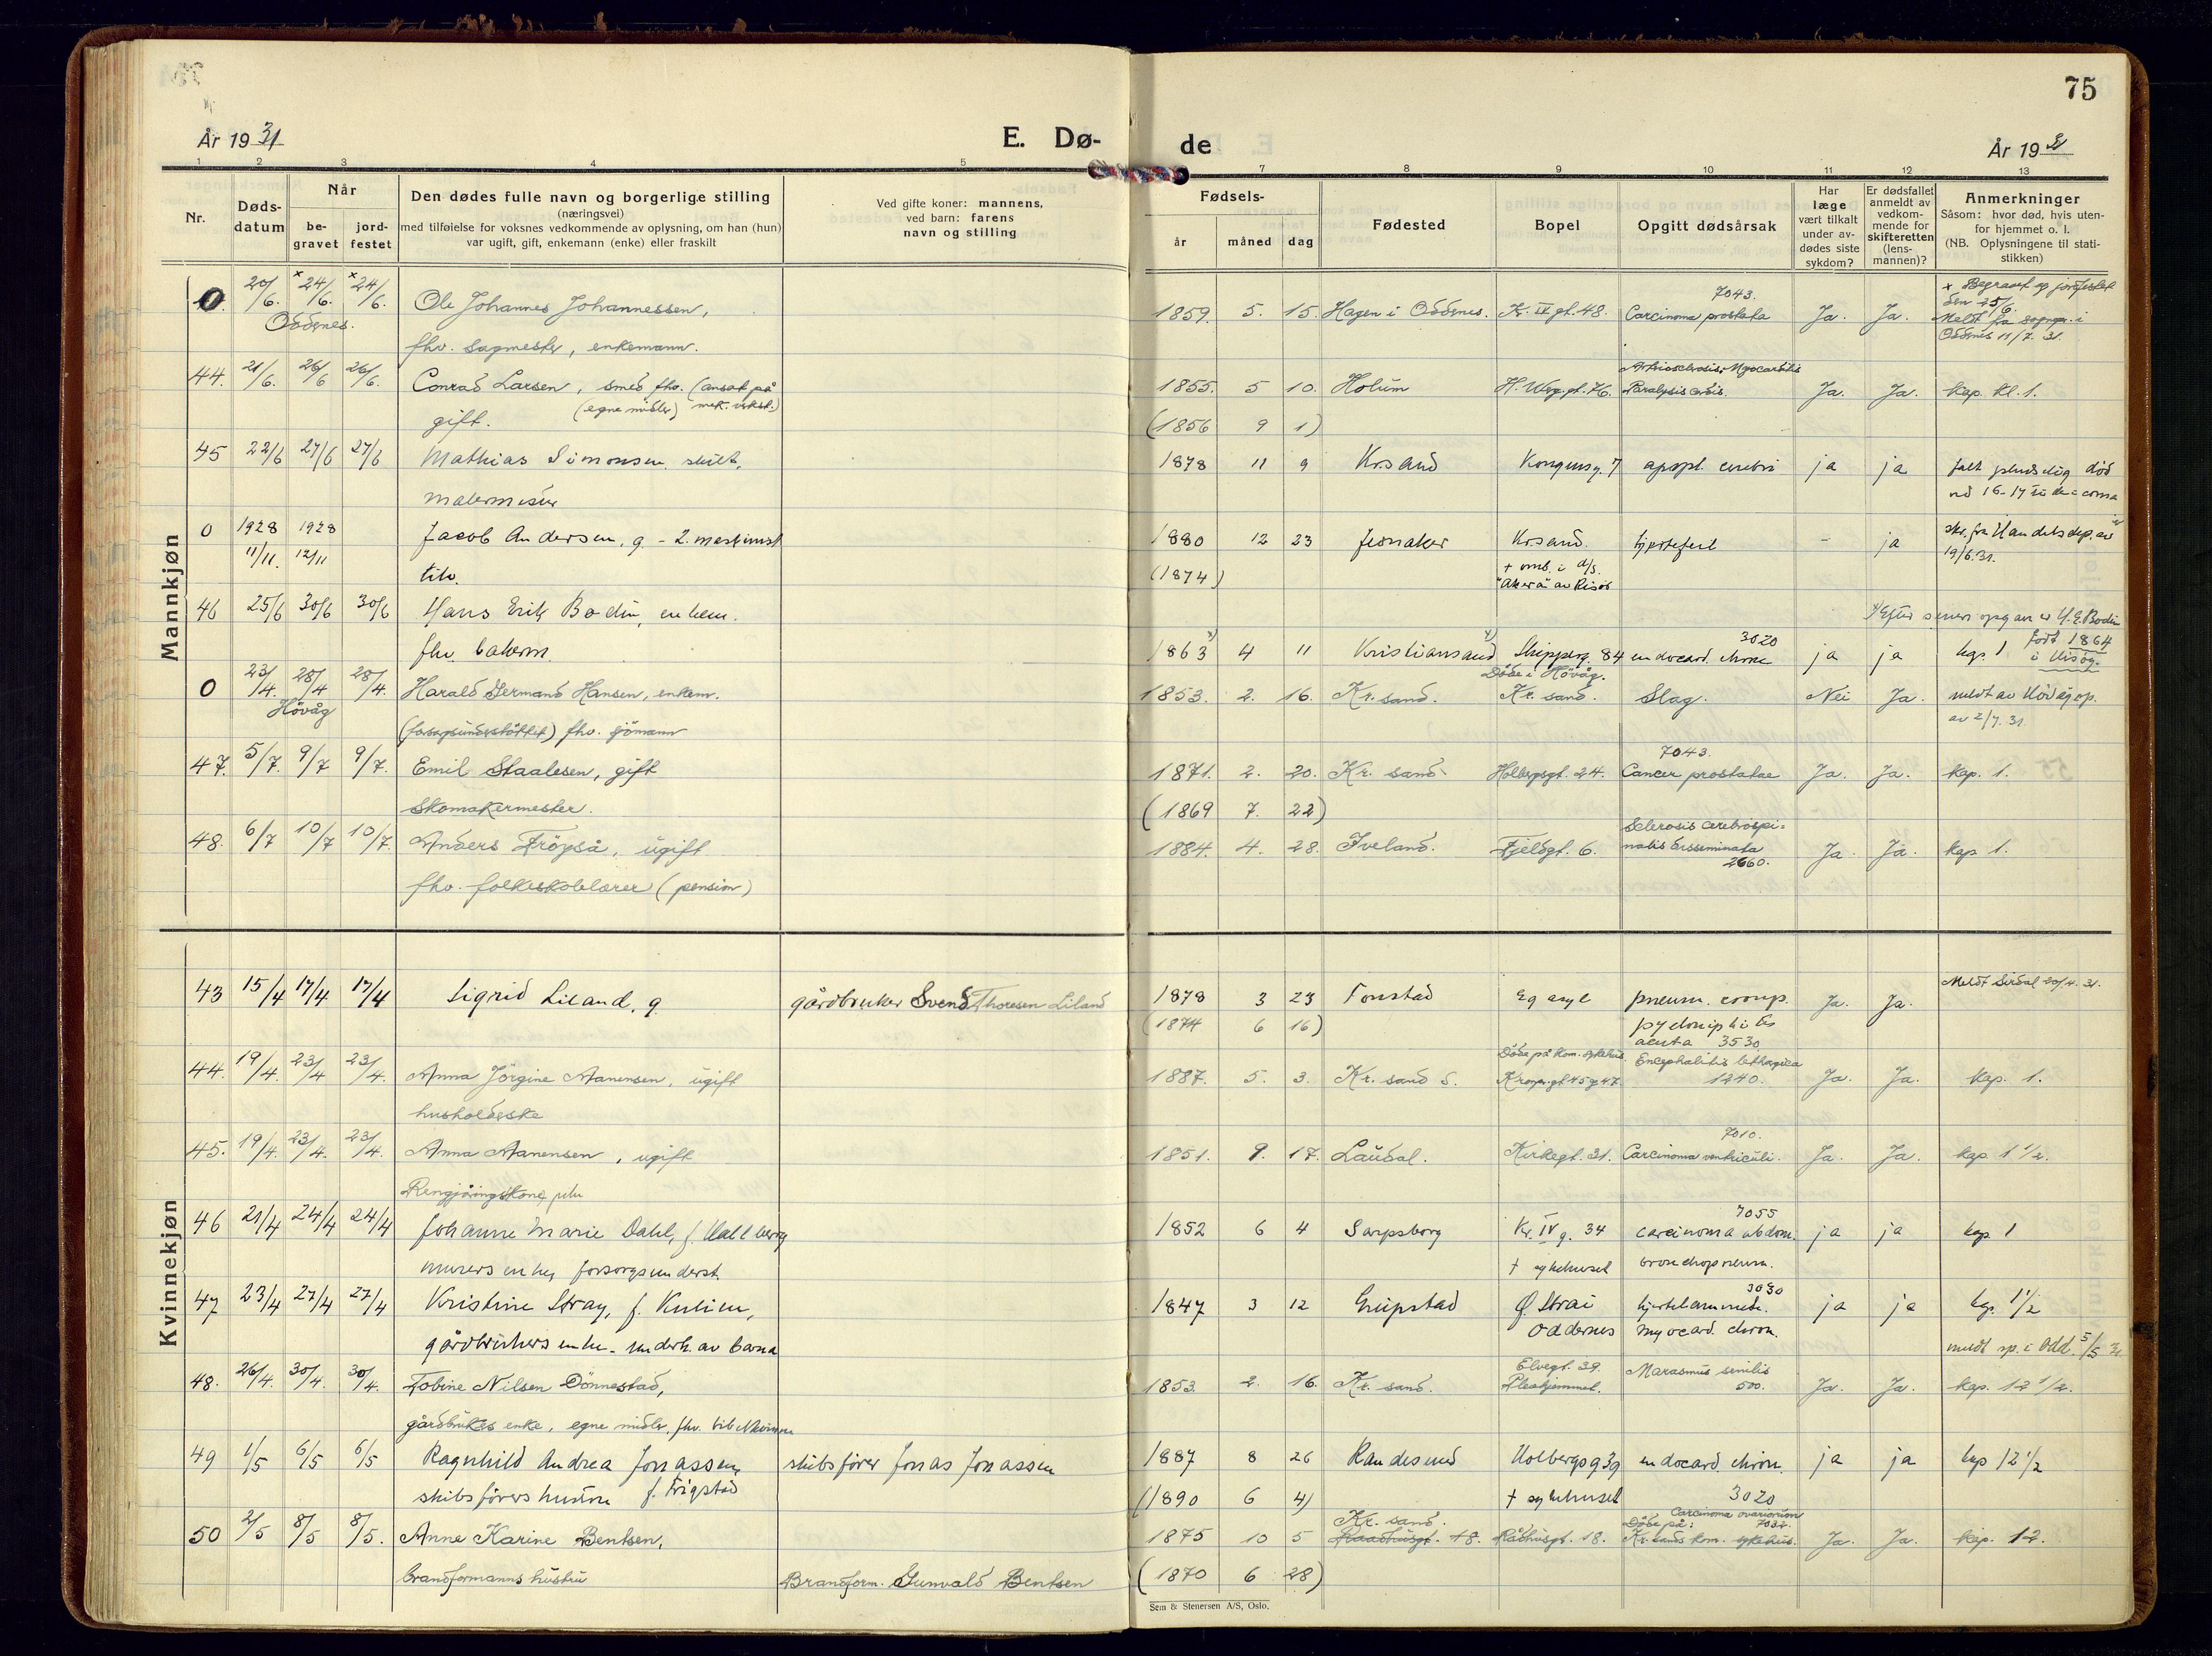 75
År 1931
E. Dø-
de
År 1931
1 2 3 4 5
7 8 9 10 11 12 13
Nr.
Døds-
datum
Når
be-
gravet
jord-
festet
Den dødes fulle navn og borgerlige stilling
(næringsvei)
med tilføielse for voksnes vedkommende av oplysning, om han (hun)
var ugift, gift, enkemann (enke) eller fraskilt
Ved gifte koner: mannens,
ved barn: farens
navn og stilling
Fødsels-
år måned dag
Fødested
Bopel
Opgitt dødsårsak
Har
læge
vært tilkalt
under av-
dødes siste
sykdom?
Er dødsfallet
anmeldt av
vedkom-
mende for
skifteretten
(lens-
mannen)?
Anmerkninger
Såsom: hvor død, hvis uten-
for hjemmet o. l.
(NB. Oplysningene til stati-
stikken)
Mannkjøn
0 20/6. x 24/6. x 24/6. Ole Johannes Johannessen, 1859. 5. 15. Hagen i Oddernes. Kr. IV gt. 48. 7043. Carcinoma prostata Ja. Ja. x Begravet og jordfestet
den 25/6.
Meldt fra sogepr. i
Oddernes 11/7. 31.
Oddernes.
fhv. sagmester, enkemann.
44. 21/6. 26/6 26/6. Conrad Larsen, smed fhv. (ansat på 1855. 5 10. Holum H. Werg.gt. 76. Arteriosclerosis. Myocarditis
Paralysis cordis. Ja. Ja. kap. kl. 1.
gift. (egne midler) mek. verkst.)
(1856 9 1)
45 22/6 27/6 27/6 Mathias Simonsen, skilt, 1878 11 9 Krsand Kongensg. 7 apopl. cerebri ja ja falt pludselig død
malermester
0 1928 11/11. 1928 12/11 Jacob Andersen, g - 2. maskinist 1880 12 23 Krsand. hjertefeil - ja skr. fra Handelsdep. av
19/6.31.
(1874)
46 25/6 30/6 30/6 Hans Erik Bodin, enkem. x) Efter senere opg. av er H. E. Bodin
født 1864
fhv. bakerm. 1863 x) 4 11 Kristiansand x) Skipperg. 84 3020 endocard. chron ja ja kap. 1
0 23/4. 28/4 28/4. Harald Germand Hansen, enkem. 1853. 2. 16. Kr.sand. Døde i Høvåg. Kr. sand. Slag. Nei Ja. meldt av Høvåg sp.
av 2/7. 31.
Høvåg
(forsorgsunderstøttet) fhv. sjømann
47. 5/7. 9/7 9/7. Emil Staalesen, gift 1871. 2. 20. Kr. sand Holbergsgt. 24. 7043. Cancer prostatae Ja. Ja. kap. 1.
Skomakermester.
(1869 7. 22)
48. 6/7 10/7 10/7. Anders Frøyså, ugift 1884. 4. 28. Iveland. Fjeldgt. 6. Sclerosis cerebrospi-
nalis disseminata
2660. Ja. Ja. kap 1.
fhv. folkeskolelærer (pension)
Kvinnekjøn
43 15/4 17/4 17/4 Sigrid Liland, g. gårdbruker Svend Thoresen Liland 1878 3 23 Tonstad Eg asyl pneum. croup. Ja. Ja. Meldt Sirdal 20/4. 31.
(1874 6 16)
acuta 3530
44. 19/4. 23/4 23/4. Anna Jørgine Aanensen, ugift 1887. 5. 3. Kr. sand S. Døde på kom. sykehus. Kronpr.gt 45 g 47 Encephalitis lethargica
1240. Ja. Ja. kap. 1.
husholderske
45. 19/4. 23/4. 23/4. Anna Aanensen, ugift 1851. 9. 17. Laudal. Kirkegt. 31. 7010. Carcinoma ventriculi. Ja. Ja. kap 1 1/2.
Rengjøringskone
46 21/4 24/4 24/4 Johanne Marie Dahl, f. Hallberg 1852 6 4 Sarpsborg Kr. IV g. 34 7055 carcinoma abdom. ja ja kap 1
murers enke, forsorgsunderst. † sykehuset bronchopneum.
47 23/4 27/4 27/4 Kristine Stray, f. Kulien, 1847 3 12 Greipstad Ø. Strai 3030 hjertelammelse. ja ja kp. 1 1/2
gårdbrukers enke - underh. av barna Oddernes myocard. chron. meldt sp. i Odd. 5/5 31
48. 26/4. 30/4. 30/4. Tobine Nilsen Dønnestad, 1853. 2. 16. Kr. sand. Elvegt. 39.
Pleiehjemmet. Marasmus senilis
500. Ja. Ja. kap. 12 1/2.
gårdbrukers enke, egne midler.
49 1/5 6/5 6/5 Ragnhild Andrea Jonassen, skibsfører Jonas Jonassen 1887 8 26 Randesund Holbergsg 39 endocard. chron. ja ja kap 12 1/2
skibsførers hustru f. Frigstad (1890 6 4) † sykehuset 3020
50 2/5 8/5 8/5. Anne Karine Bentsen, 1875 10 5 Kr. sand.
Raadhusgt. 18. Rådhusgt. 18. Carcinoma ovariorum
Døde på: 7032.
Kr. sands kom. sykehus. Ja. Ja. kap. 12.
brandformanns hustru Brandform. Gunvald Bentsen (1870 6 28)
Sem & Stenersen A/S, Oslo.